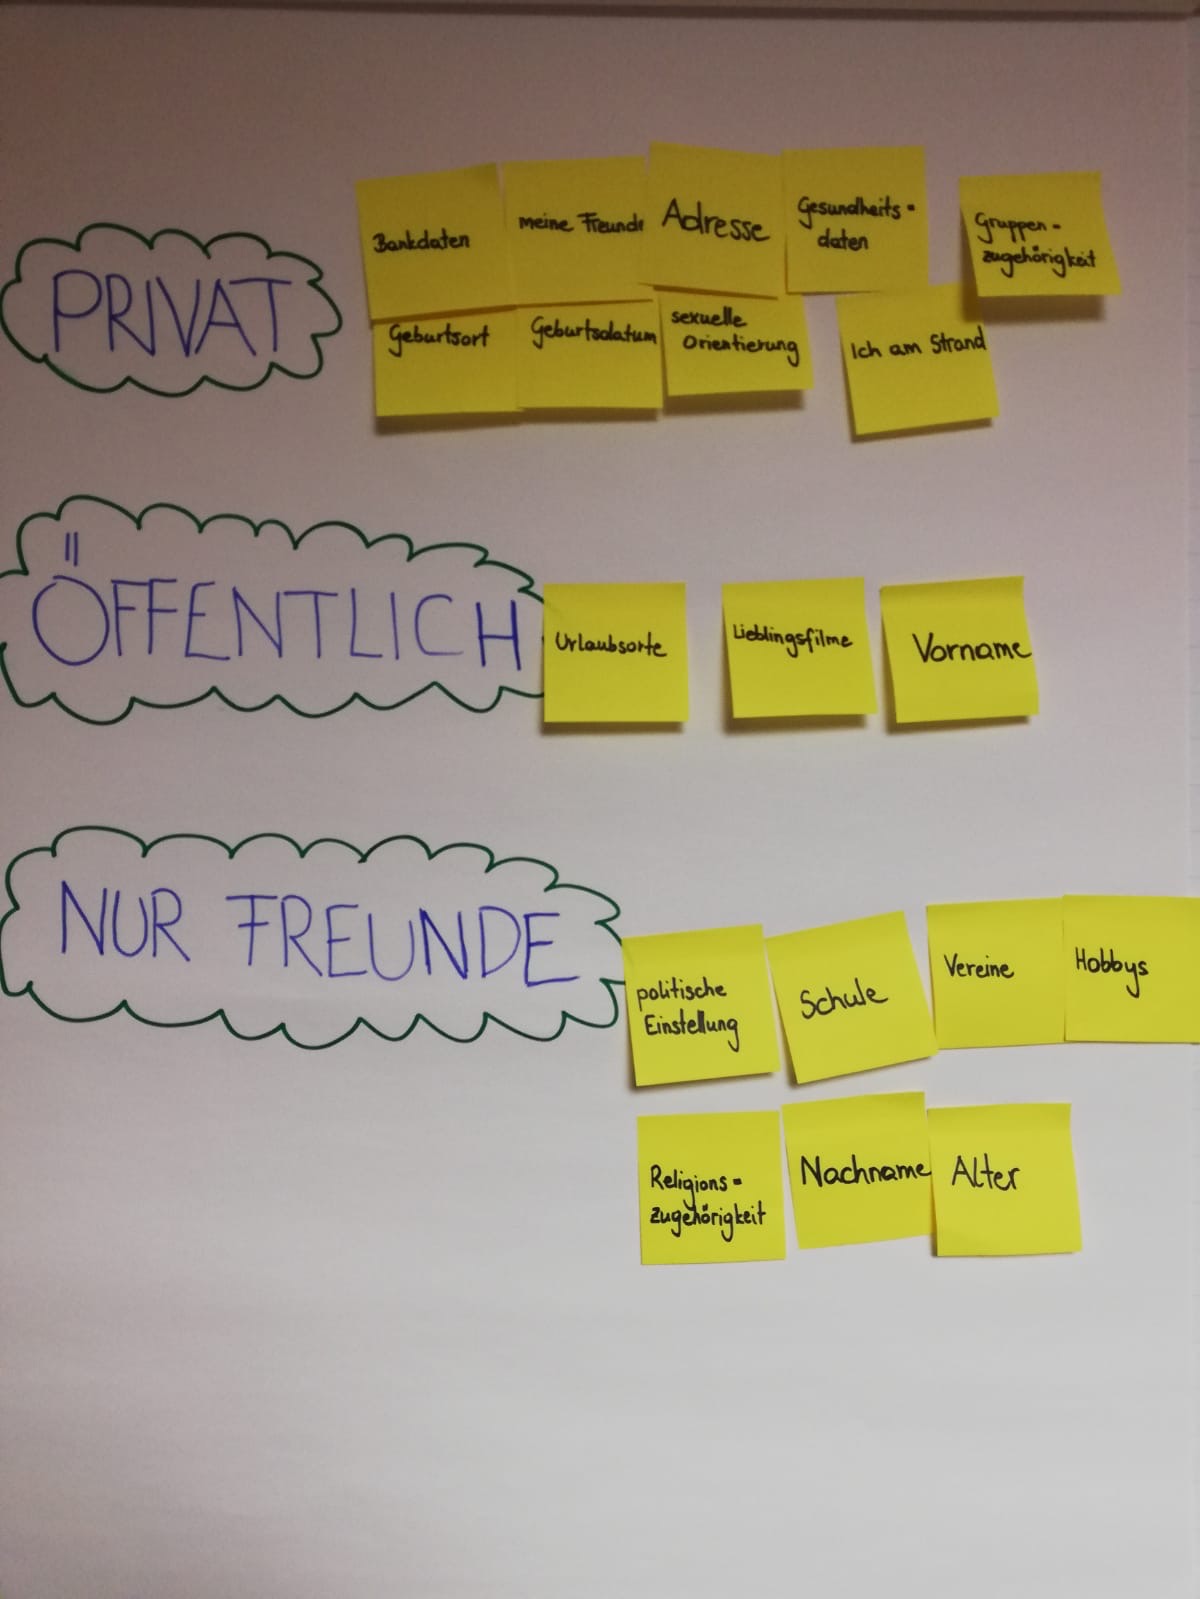 PRIVAT
Bankdaten
meine Freunde
Adresse
Gesundheits-
daten
Gruppen-
zugehörigkeit
Geburtsort
Geburtsdatum
sexuelle
Orientierung
Ich am Strand
ÖFFENTLICH
Urlaubsorte
Lieblingsfilme
Vorname
NUR FREUNDE
politische
Einstellung
Schule
Vereine
Hobbys
Religions-
zugehörigkeit
Nachname
Alter